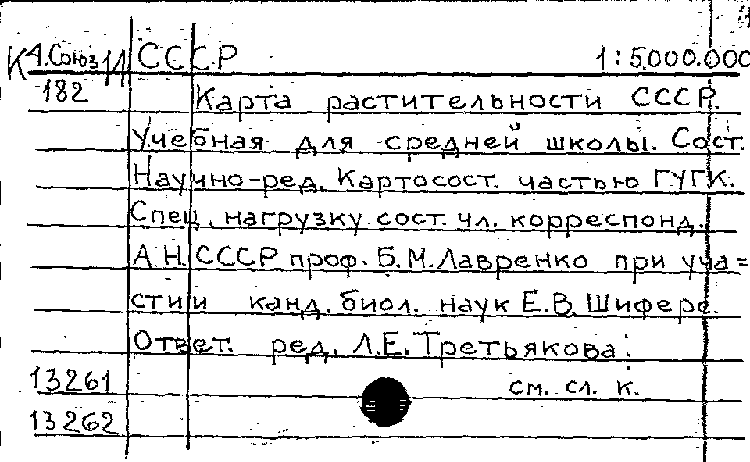 К 4. Союз И СССР 1:5.000.000
182 Карта растительности СССР.
Учебная для средней школы. Сост.
Научно-ред. Картосост. частью ГУГК.
Спец. нагрузку сост. чл. корреспонд.
А.Н. СССР проф. Б.М. Лавренко при уча=
стии канд. биол. наук Е.В. Шиферс.
Ответ. ред. Л.Е. Третьякова.
13261 см. сл. к.
13262